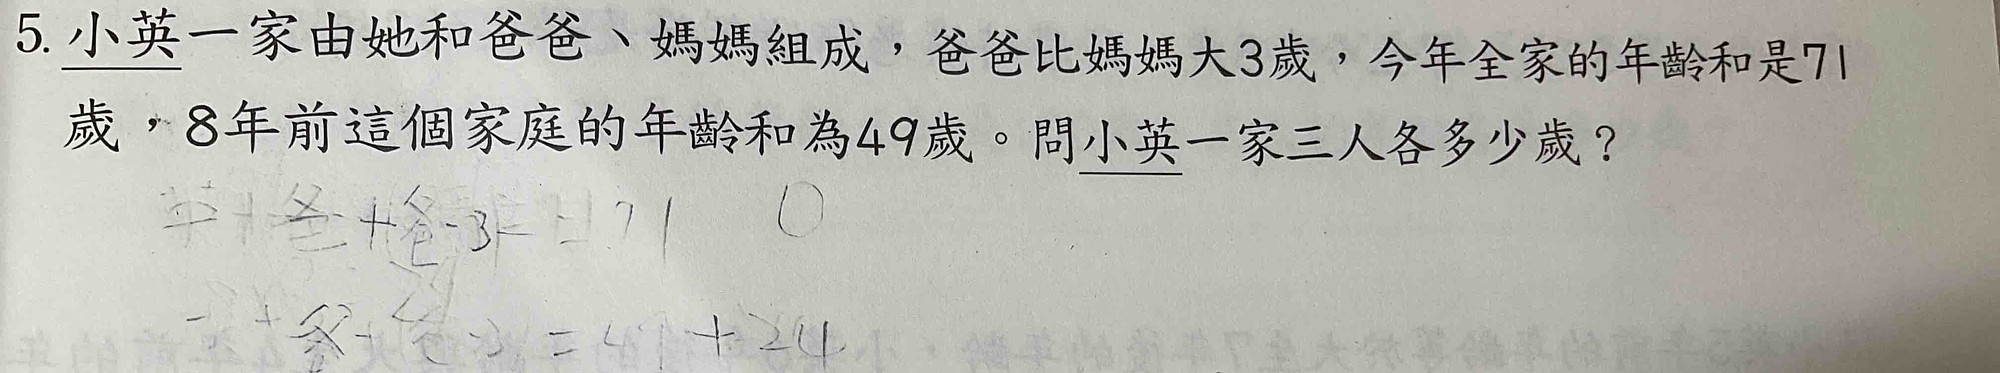 5. 小英一家由她和爸爸、媽媽組成，爸爸比媽媽大3歲，今年全家的年齡和是71
歲，8年前這個家庭的年齡和為49歲。問小英一家三人各多少歲？
英+爸+爸-3=71